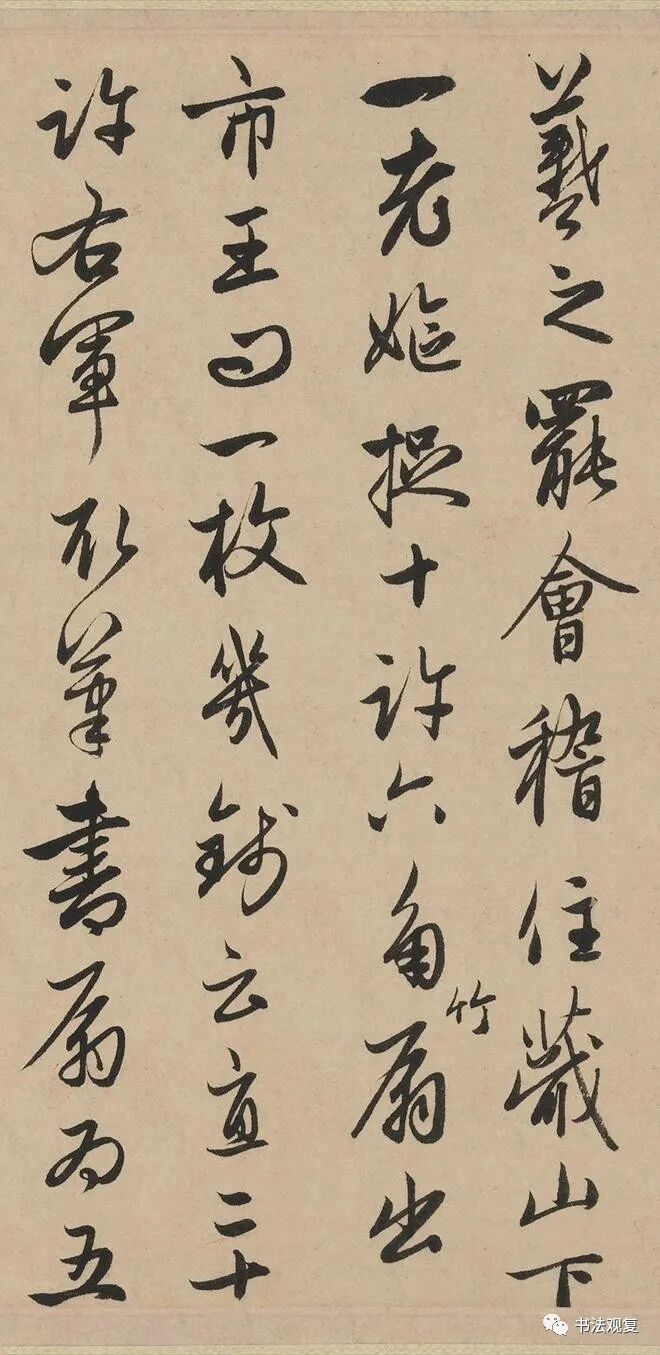 羲之罷會稽住蕺山下
一老嫗捉十許六角竹扇出
市王問一枚幾錢云直二十
許右軍取筆書扇為五
书法观复